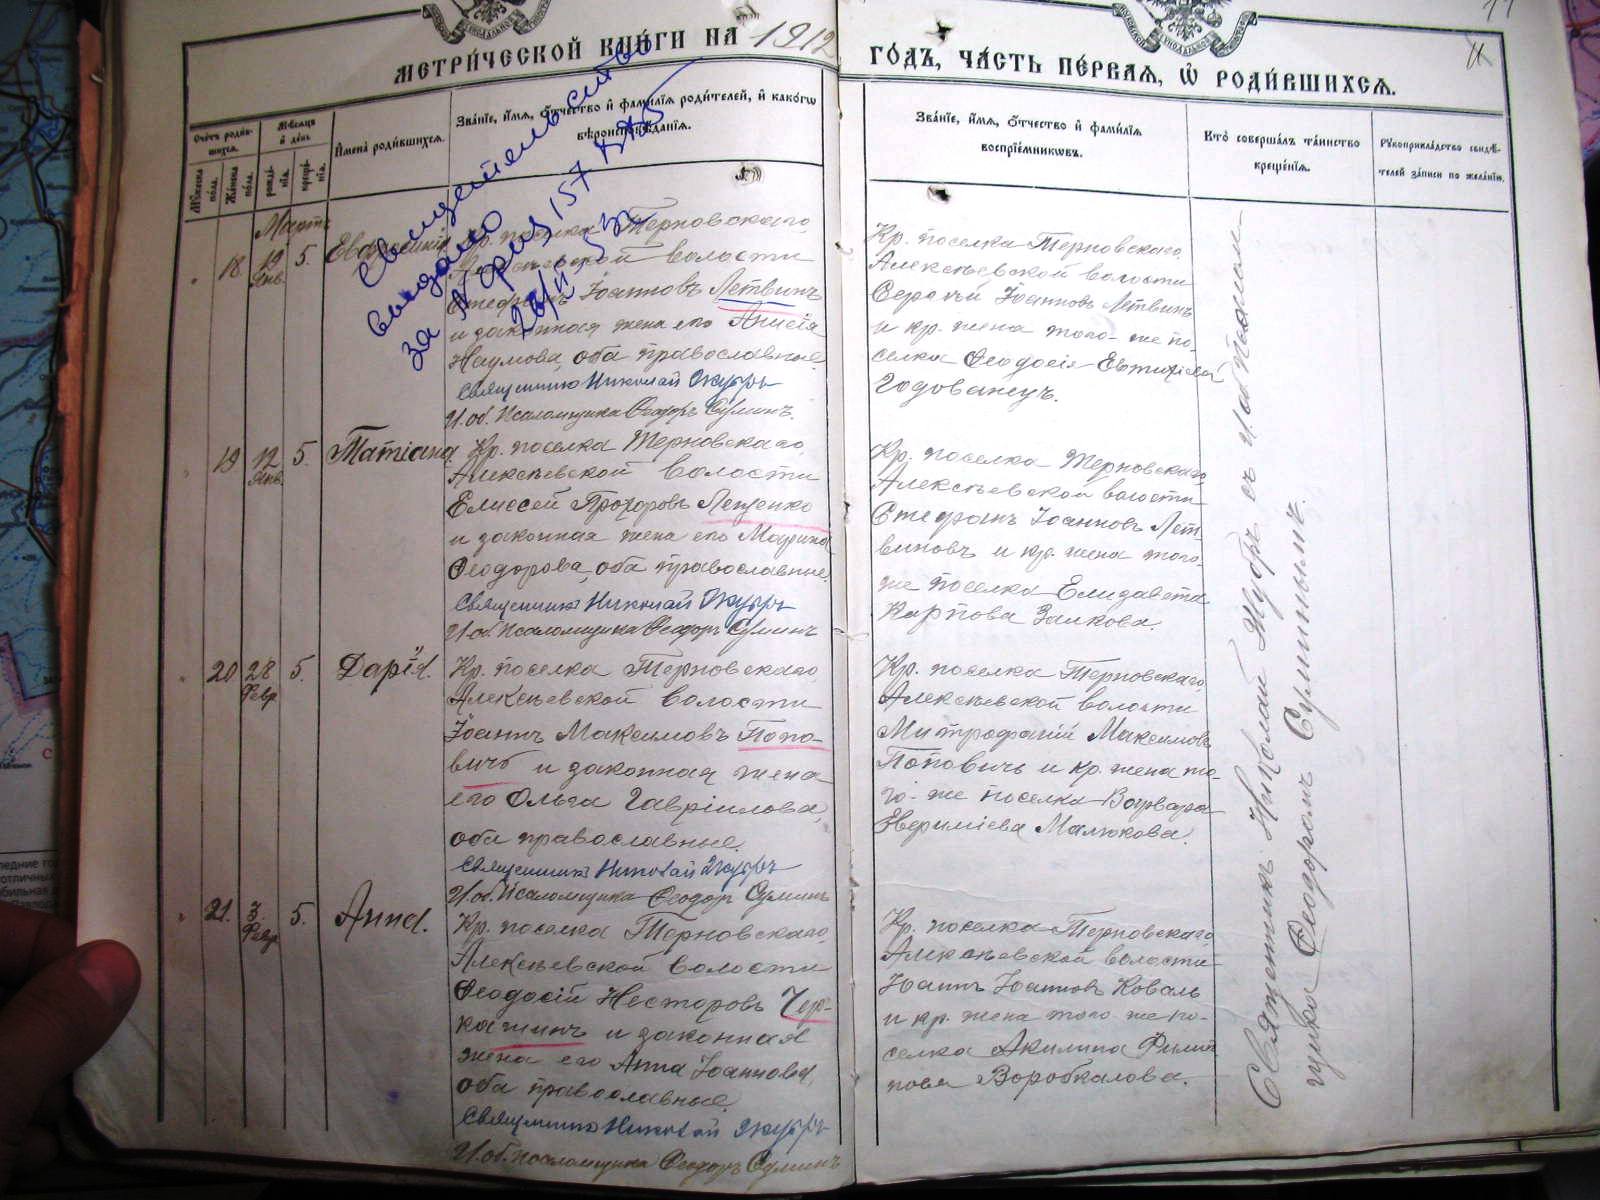 МЕТРИ́ЧЕСКОЙ КНИ́ГИ НА 1912 ГОДЪ, ЧА́СТЬ ПЕ́РВАЯ, Ѡ҆ РОДИ́ВШИХСЯ.
11
Счётъ роди́вшихся.
Мѣ́сяцъ и҆ де́нь
Мꙋ́жеска по́ла.
Же́нска по́ла.
рожде́нїя.
креще́нїя.
И҆мена̀ роди́вшихся.
Зва́нїе, и҆́мя, ѻ҆́тчество и҆ фами́лїя роди́телей, и҆ како́гѡ
вѣроисповѣ́данїя.
Зва́нїе, и҆́мя, ѻ҆́тчество и҆ фами́лїя
воспрїе́мникѡвъ.
Кто̀ соверша́лъ та́инство
креще́нїя.
Рꙋкоприкла́дство свидѣ́-
телей за́писи по жела́нїю.
Свидетельство
выдано
за № 157
Мартъ
18 19 Янв. 5.
Кр. поселка Терновскаго,
волости
Стефанъ Іоанновъ Летвинъ
и законная жена его Анисія
Наумова, оба православные.
Священникъ Николай
И. об. Псаломщика Ѳеодоръ Сулинъ.
Кр. поселка Терновскаго,
Алексѣевской волости
Сергѣй Іоанновъ Летвинъ
и кр. жена того-же по-
селка Ѳеодосія
19 12 Янв. 5. Татіана
Кр. поселка Терновскаго,
Алексѣевской волости
Елисей Прохоровъ Лещенко
и законная жена его Марина
Ѳеодорова, оба православные.
Священникъ Николай
И. об. Псаломщика Ѳеодоръ Сулинъ
Кр. поселка Терновскаго,
Алексѣевской волости
Стефанъ Іоанновъ Лет-
виновъ и кр. жена того-
же поселка Елизавета
Карпова Заикова.
20 28 Февр. 5. Дарія.
Кр. поселка Терновскаго,
Алексѣевской волости
Іоаннъ Максимовъ Попо-
вичъ и законная жена
его Ольга Гавріилова,
оба православные.
Священникъ Николай
И. об. Псаломщика Ѳеодоръ Сулинъ
Кр. поселка Терновскаго,
Алексѣевской волости
Митрофаній Максимовъ
Поповичъ и кр. жена то-
го-же поселка Варвара
Малюкова.
21. 3. Февр. 5. Анна.
Кр. поселка Терновскаго,
Алексѣевской волости
Ѳеодосій Несторовъ Чер-
кашинъ и законная
жена его Анна Іоаннова,
оба православные.
Священникъ Николай
И. об. псаломщика Ѳеодоръ Сулинъ
Кр. поселка Терновскаго,
Алексѣевской волости
Іоаннъ Іоанновъ Коваль
и кр. жена того же по-
селка Акилина Филип-
пова Воробкалова.
Священникъ Николай съ и. об. Псалом-
щика Ѳеодоромъ Сулинымъ.